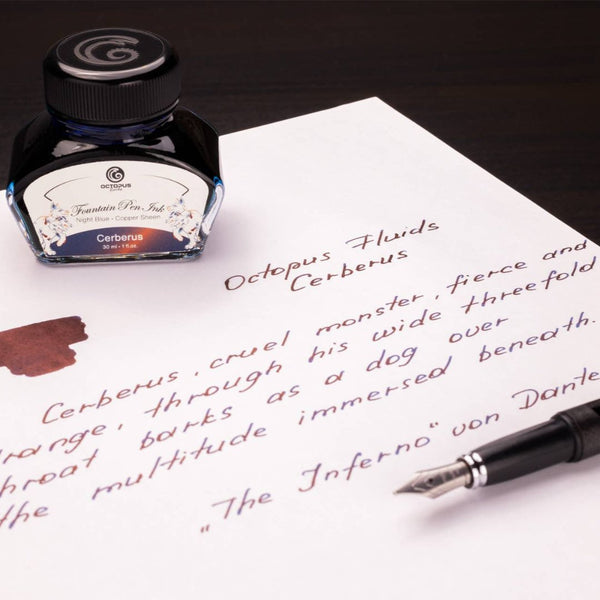 OCTOPUS
FLUIDS
Fountain Pen Ink
Night Blue - Copper Sheen
Cerberus
30 ml - 1 fl.oz.
Octopus Fluids
Cerberus
Cerberus, cruel monster, fierce and
trange, through his wide threefold
throat barks as a dog over
the multitude immersed beneath.
„The Inferno“ von Dante